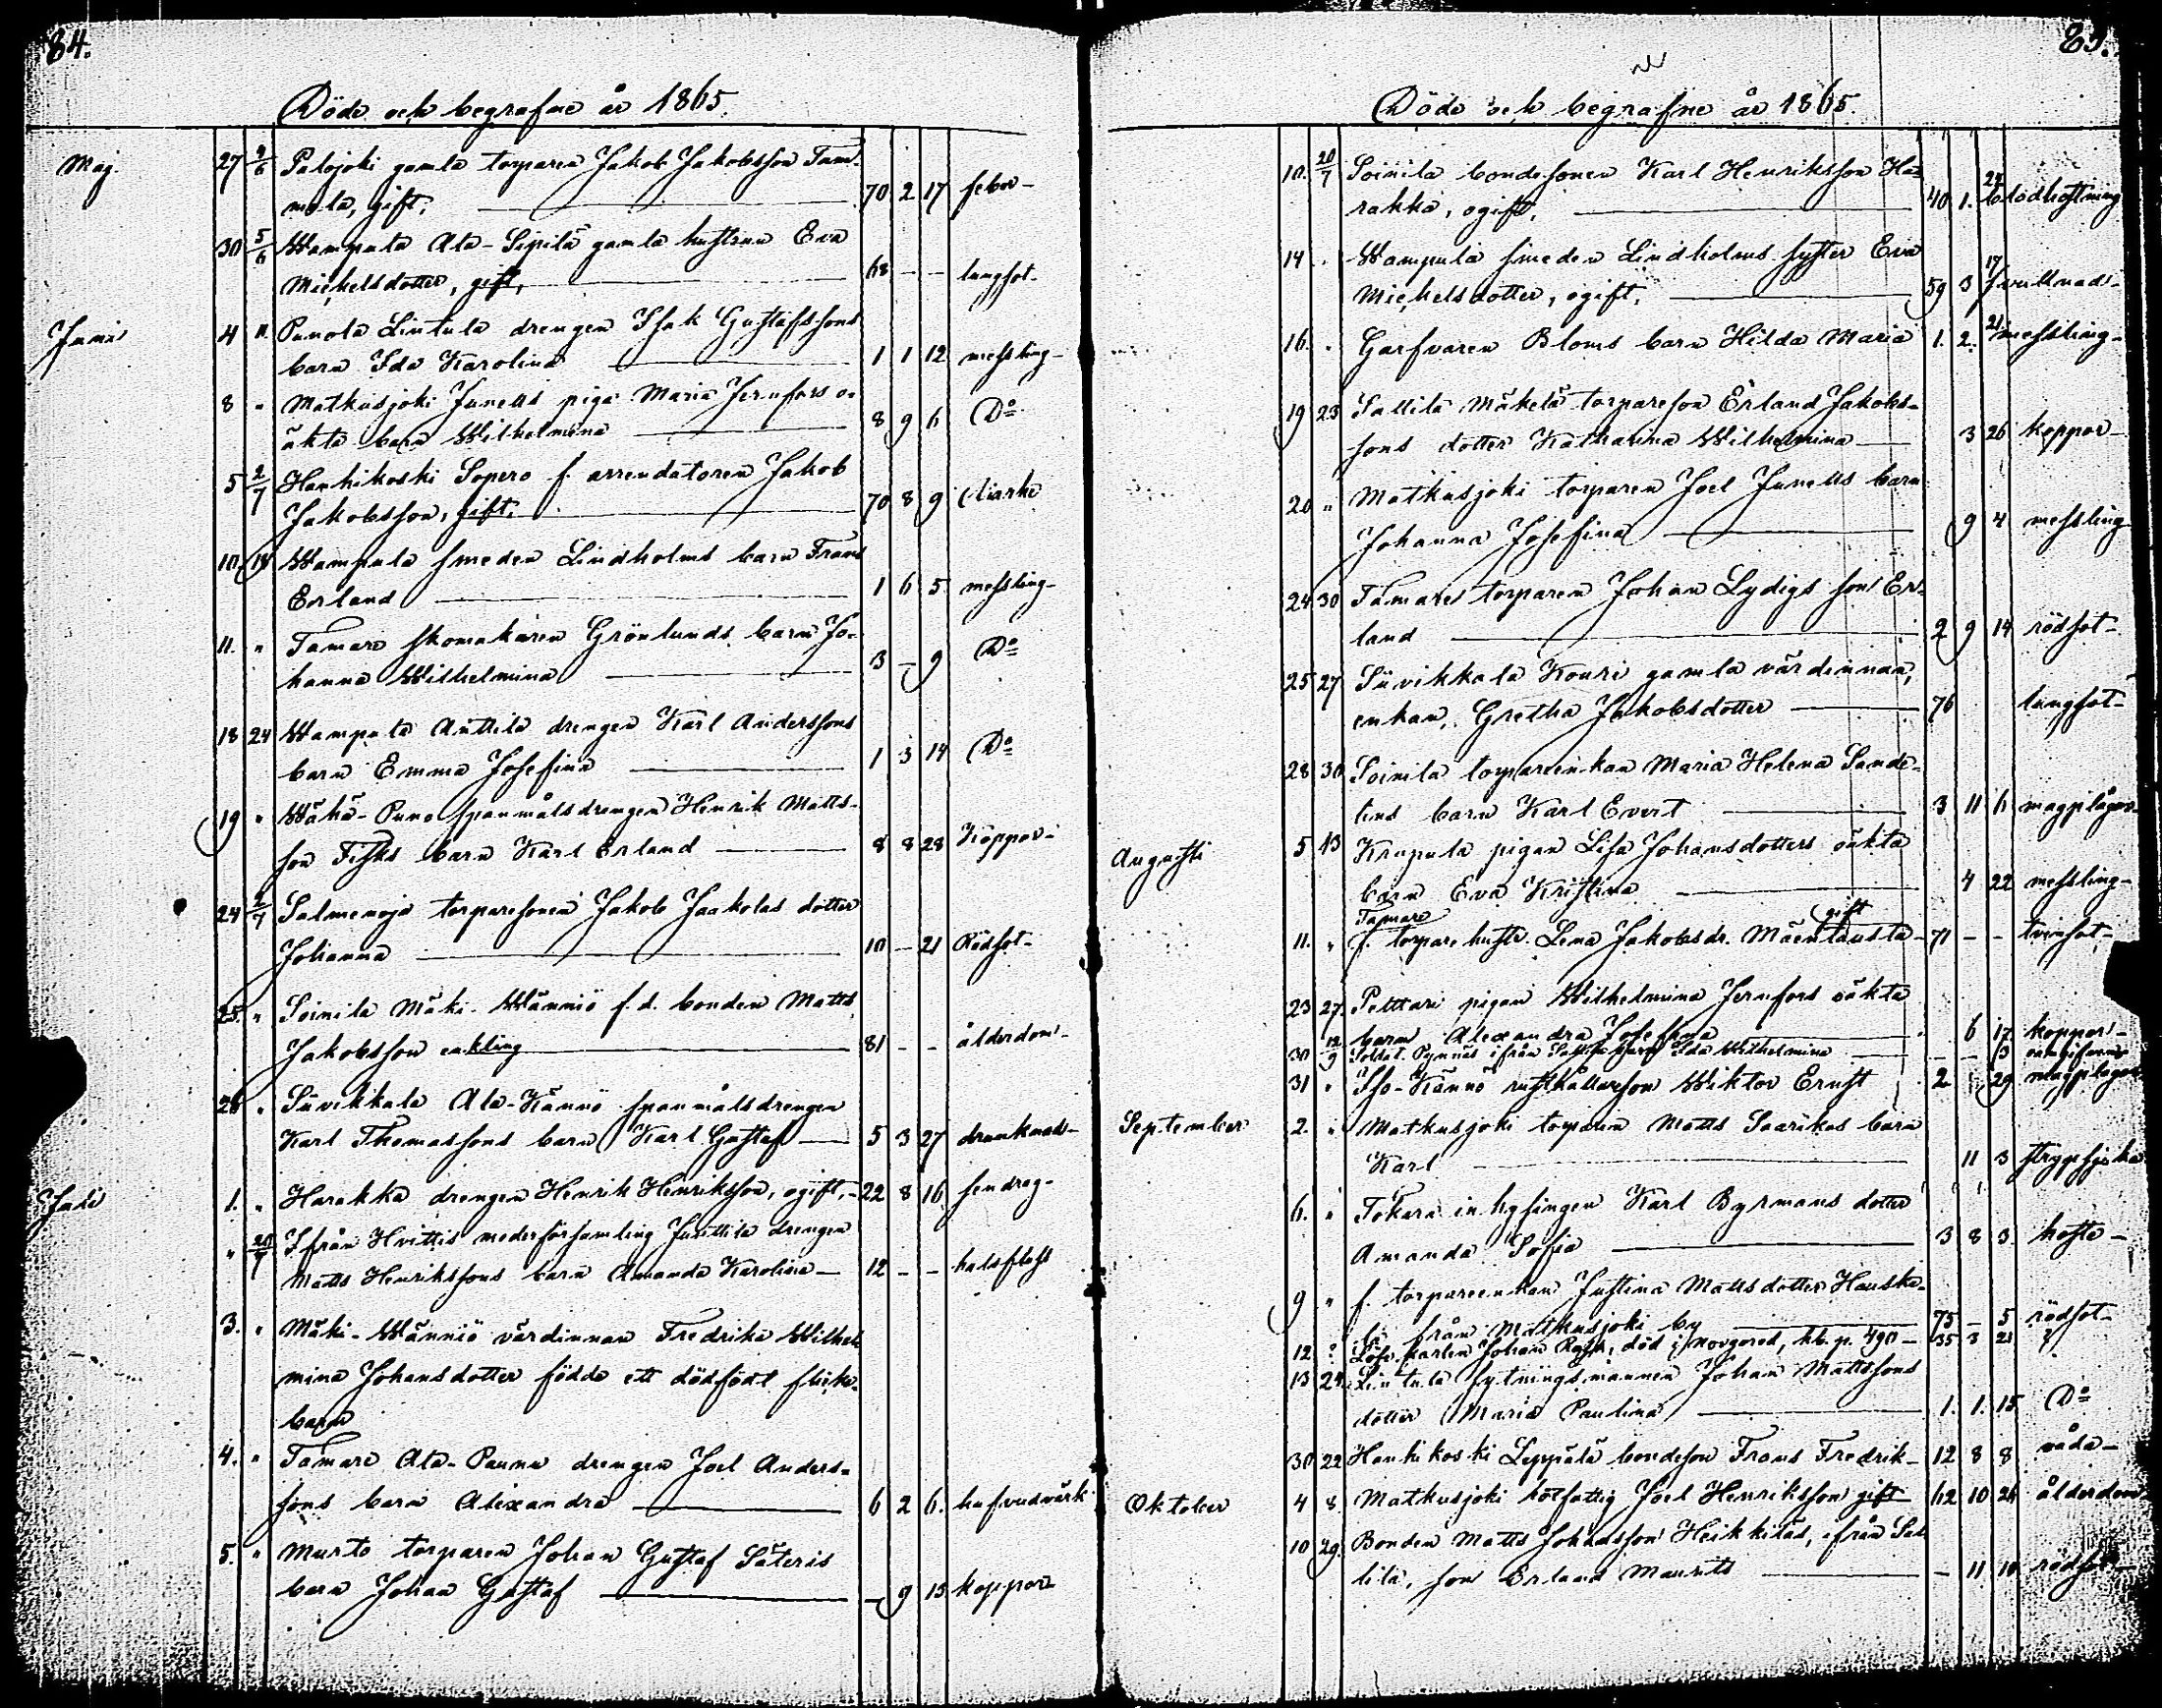 84.
Döde och begrafne år 1865.
Maj. 27 2/6 Palojoki gamla torparen Jakob Jakobsson Tam-
mela, gift. 70 2 17 feber
30 5/6 Wampula Ala-Sipilä gamla hustrun Eva
Michelsdotter, gift, 68 - - lungsot
Juni 4 11 Punola Lintula drengen Isak Gustafssons
barn Ida Karolina 1 1 12 messling
8 " Matkusjoki Junells piga Maria Jernfors o-
äkta barn Wilhelmina 8 9 6 Do
5 2/7 Hanhikoski Sopero f. arrendatoren Jakob
Jakobsson, gift. 70 8 9 diarhe
10 18 Wampula smeden Lindholms barn Frans
Erland 1 6 5 messling
11. " Tamare skomakaren Grönlunds barn Jo-
hanna Wilhelmina 3 - 9 Do
18 24 Wampula Anttila drengen Karl Anderssons
barn Emma Josefina 1 3 14 Do
19 " Wähä-Puno spanmålsdrengen Henrik Matts-
son Fisks barn Karl Erland 8 8 28 Koppor
24 2/7 Salmenoja torparesonen Jakob Jaakolas dotter
Johanna 10 - 21 Rödsot
25. " Soinila Mäki-Wänniö f.d. bonden Matts
Jakobsson enkling 81 - - ålderdom
26 " Süvikkala Ala-Kännö spanmålsdrengen
Karl Thomassons barn Karl Gustaf 5 3 27 drunknad
Juli 1. " Harakka drengen Henrik Henriksson, ogift, 22 8 16 sendrag
" 20/7 Ifrån Hvittis moderförsamling Junttila drengen
Matts Henrikssons barn Amanda Karolina 12 - - halsfluss
3. " Mäki-Wänniö värdinnan Fredrika Wilhel
mina Johansdotter födde ett dödfödt flicke-
barn
4. " Tamare Ala-Paunu drengen Joel Anders-
sons barn Alexandra 6 2 6. hufvudvärk
5. " Murto torparen Johan Gustaf Säteris
barn Johan Gustaf - 9 15 koppor
85.
Döde och begrafne år 1865.
10. 20/7 Soinila bondesonen Karl Henriksson Ha-
rakka, ogift, 40 1. 24 blodhostning
14 . Wampula smeden Lindholms syster Eva
Michelsdotter, ogift, 59 3 17 svullnad
16. " Garfvaren Bloms barn Hilda Maria 1. 2. 21 messling
19 23 Sallila Mäkelä torpareson Erland Jakobs-
sons dotter Katharina Wilhelmina 3 26 koppor
20 " Matkusjoki torparen Joel Junells barn
Johanna Josefina 9 4 messling
24 30 Tamare torparen Johan Lydigs son Er-
land 2 9 14 rödsot
25 27 Süvikkala Kouri gamla värdinnan,
enkan, Gretha Jakobsdotter 76 lungsot
28 30 Soinila torpareenkan Maria Helena Sande-
lins barn Karl Evert 3 11 6 magplågor
Augusti 5 13 Krapula pigan Lisa Johansdotters oäkta
barn Eva Kristina 4 22 messling
11. " Tamare f. torpare hustr. Lena Jakobsdr. Mäentausta gift 71 - - tvinsot
23 27. Pelttari pigan Wilhelmina Jernfors oäkta
barn Alexandra Josefina 6 17 koppor
30 12/9 Soldat. Pynnäs ifrån Sallila barn Ida Wilhelmina - - 3
31 " Iso-Kännö rusthållareson Wiktor Ernst 2 29 magplågor
September 2. " Matkusjoki torparen Matts Saarikas barn
Karl 11 3 strypsjuka
6. " Tokera inhysingen Karl Byrmans dotter
Amanda Sofia 3 8 3 hosta
9 " f. torpareenkan Justina Mattsdotter Hauska-
la från Matkusjoki by 75 - 5 rödsot
12 ? Löse karlen Johan Rask, död i Novgorod, kb. p. 490 35 3 21 ?
13 24. Lintula sytningsmannen Johan Mattssons
dotter Maria Paulina 1. 1. 15 Do
30 22 Hanhikoski Leppälä bondeson Frans Fredrik 12 8 8 våda
Oktober 4 8. Matkusjoki hotfattig Joel Henriksson gift 62 10 26 ålderdom
10 29. Bonden Matts Johansson Heikkiläs, ifrån Sal
lila, son Erland Maurits - 11 10 rödsot